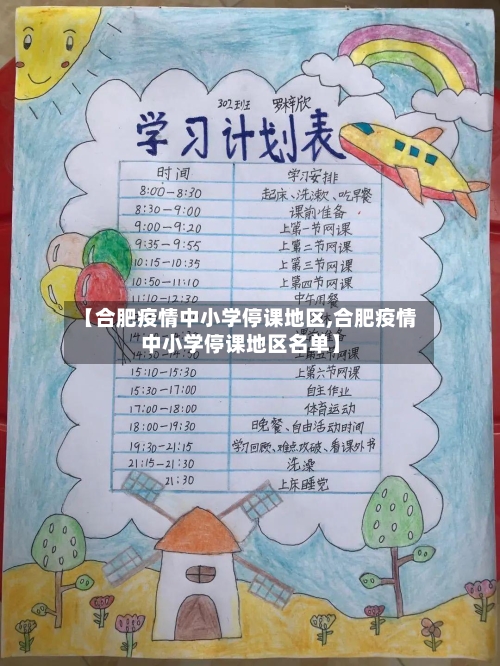 302班 罗梓欣
学习计划表
时间 学习安排
8:00-8:30 起床、洗漱、吃早餐
8:30-9:00 课前准备
9:00-9:20 上第一节网课
9:35-9:55 上第二节网课
10:15-10:35 上第三节网课
10:50-11:10 上第四节网课
11:10-12:30 中午用餐
【合肥疫情中小学停课地区,合肥疫情
中小学停课地区名单】
14:30-14:50 上第五节网课
15:10-15:30 上第六节网课
15:30-17:00 自主作业
17:00-18:00 体育运动
18:00-19:30 晚餐、自由活动时间
19:30-21:15 学习回顾、难点攻破、看课外书
21:15-21:30 洗澡
21:30 上床睡觉